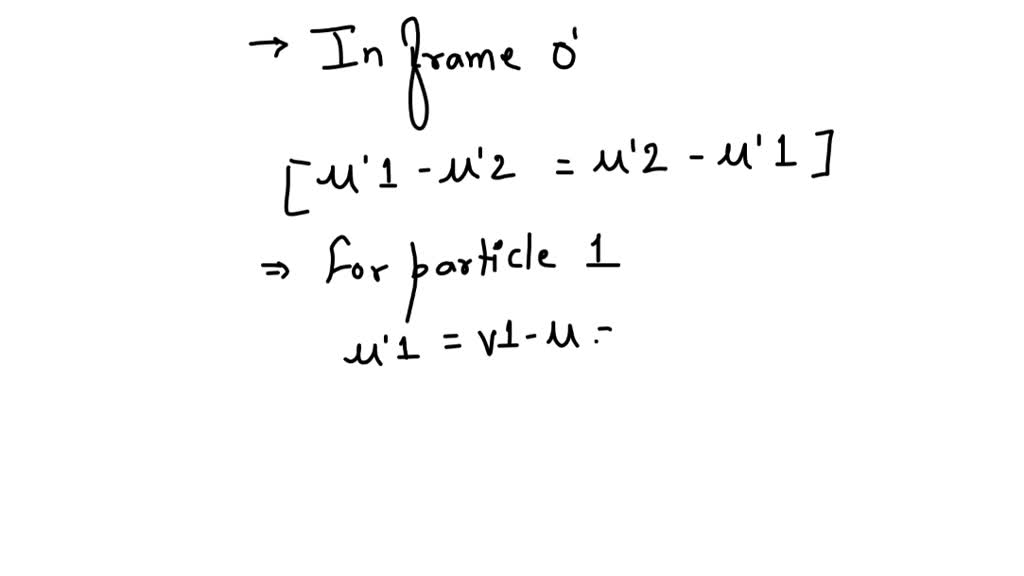 → In frame O'
[u'1 - u'2 = u'2 - u'1]
⇒ For particle 1
u'1 = v1 - u =